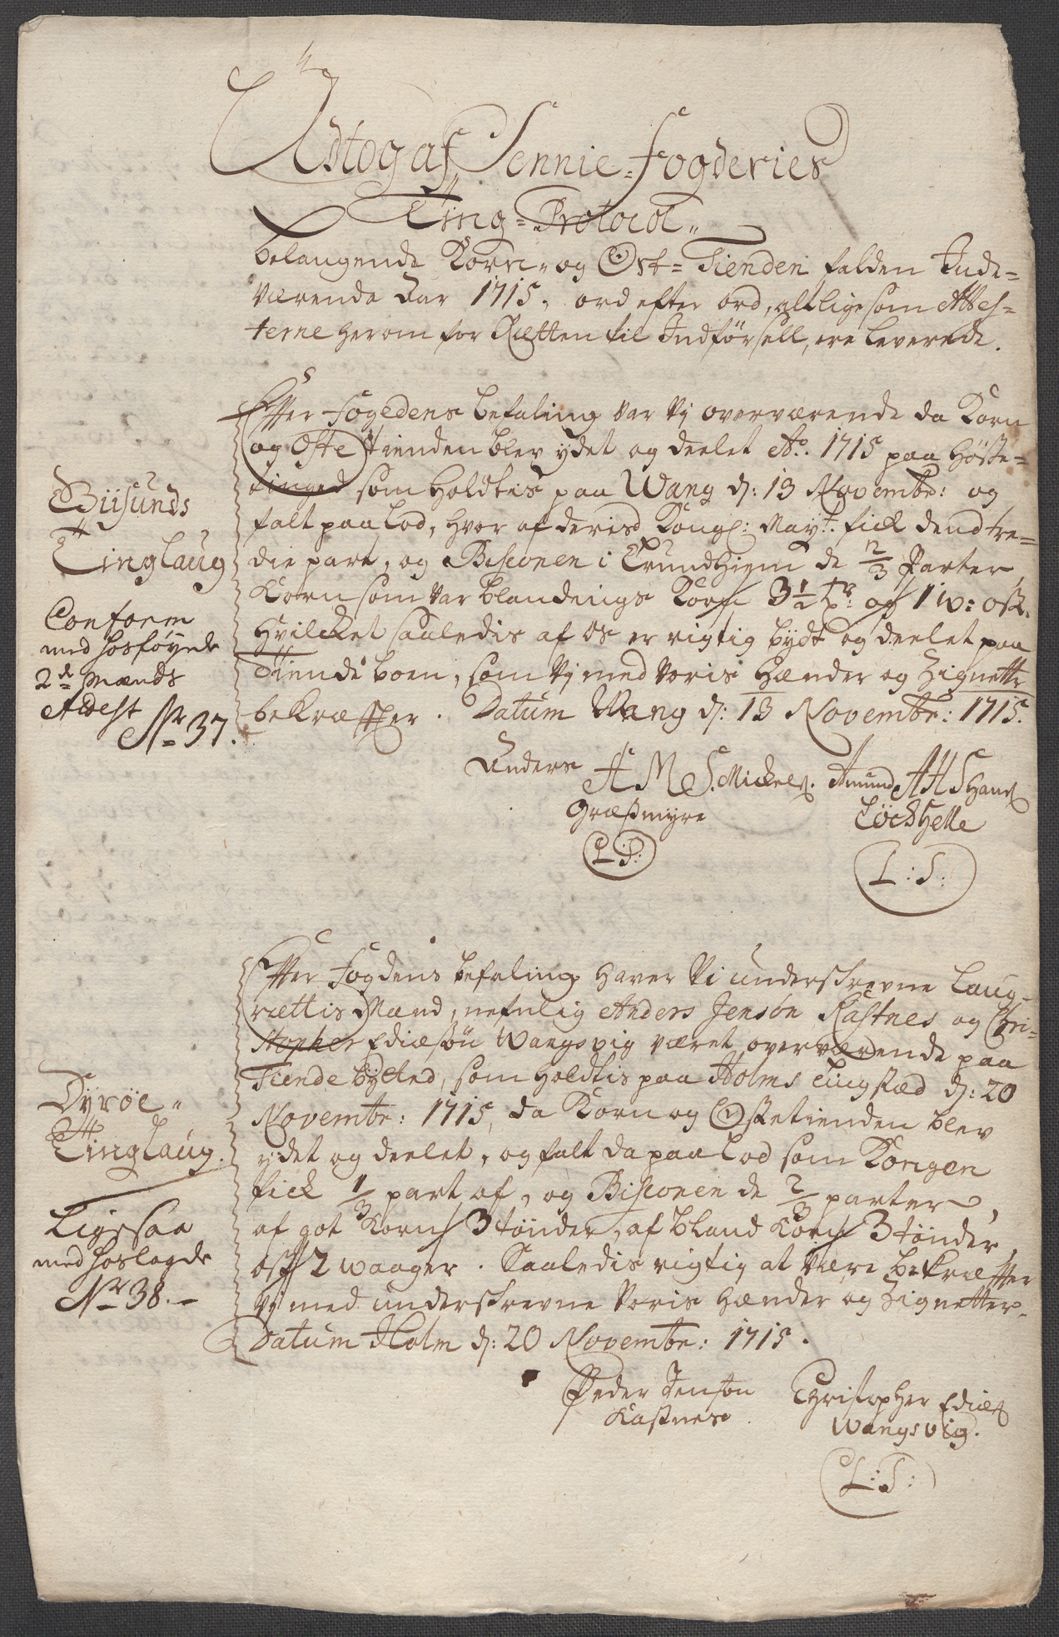 Udtog af Sennie-Fogderies
Ting-Protocol
belangende Korn- og Ost-Tienden falden Inde=
værende Aar 1715, ord efter ord, allige som Attes=
terne herom for Rætten til Indförsell, ere leverede.
Efter Fogedens befaling var Vj overværende da Korn
og Oste Tienden blev ydet og deelet Ao. 1715 paa Höste=
tinged som holdtes paa Wang d: 13 Novembr: og
falt paa Lod, hvor af deris Kongl: Mayt. fick dend tre=
die part, og Bispen i Trundhiem de 2/3 Parter
Korn som var blandings Korn 3 1/2 tr: og 1 w: ost.
Hvilcket saaledis af os er rigtig bydt og deelet paa
Tiende boen, som Vj med Voris Hænder og Zignette
bekræffter. Datum Wang d: 13 Novembr: 1715.
Giisunds
Tinglaug
Conform
med hosföyede
2de Mænds
Attest
No 37.
Anders A M S. Mickels. Amund A H S Hans
Græsmyre Löckhelle
L: S: L: S:
Efter Fogdens befaling haver Vi underskrevne Laug-
rettis Mænd, nefnlig Anders Jensön Kastnes og Chri-
stopher Ediæsön Wangsvig været overværende paa
Tiende bytted, som holdtis paa Holms Tingstæd d: 20
Novembr: 1715, da Korn og Ostetienden blev
ydet og deelet, og falt da paa Lod som Kongen
fick 1/3 part af, og Bispen de 2/3 parter,
af got Korn 3 tönder, af bland Korn 3 tönder,
ost 2 waager. Saaledis rigtig at være bekræffter
Vj med underskrevne Voris Hænder og Zignetter.
Datum Holm d: 20 Novembr: 1715.
Dyröe-
Tinglaug.
Ligesaa
med hoslagde
No 38.
Peder Jensön Christopher Ediæs
Kastnes. Wangsvig.
L: S: